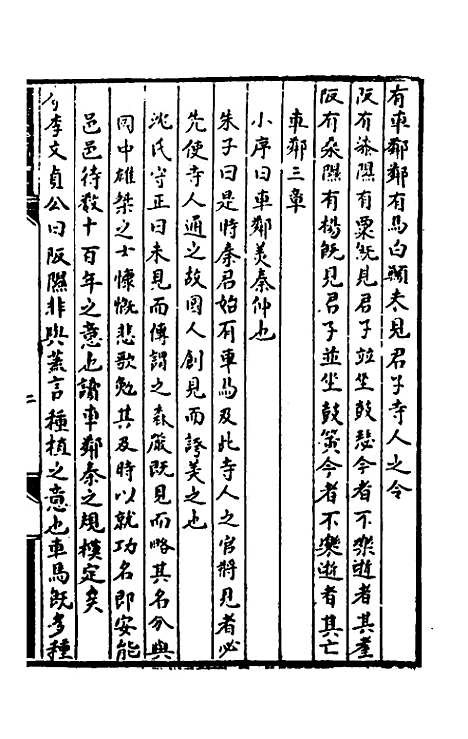 有車鄰鄰有馬白顛未見君子寺人之令
阪有漆隰有栗旣見君子並坐鼓瑟今者不樂逝者其耋
阪有桑隰有楊旣見君子並坐鼓簧今者不樂逝者其亡
車鄰三章
小序曰車鄰美秦仲也
朱子曰是時秦君始有車馬及此寺人之官將見者必
先使寺人通之故國人創見而誇美之也
沈氏守正曰未見而傳謂之森嚴旣見而略其名分與
同中雄桀之士慷慨悲歌勉其及時以就功名即安能
邑邑待數十百年之意也讀車鄰秦之規模定矣
李文貞公曰阪隰非與蓋言種植之意也車馬旣多種
二